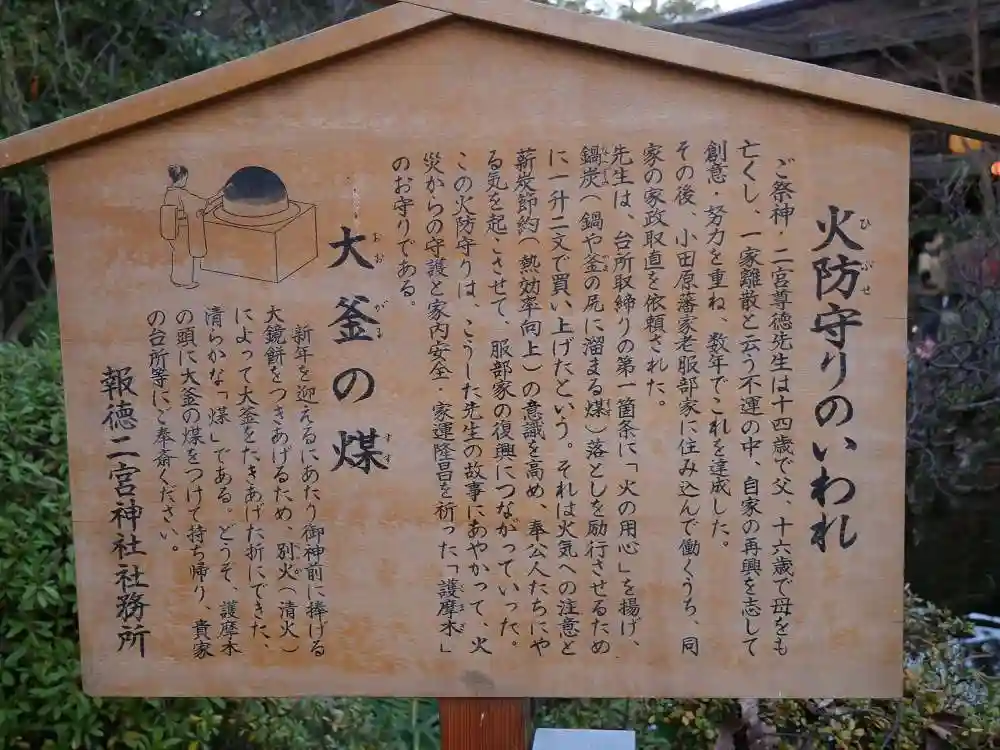 火防守りのいわれ
ひ ぶせ
ご祭神 二宮尊徳先生は十四歳で父、十六歳で母をも
亡くし、一家離散と云う不運の中、自家の再興を志して
創意・努力を重ね、数年でこれを達成した。
その後、小田原藩家老服部家に住み込んで働くうち、同
家の家政取直を依頼された。
先生は、台所取締りの第一箇条に「火の用心」を揚げ、
鍋炭(鍋や釜の尻に溜まる煤)落としを励行させるため
に一升二文で買い上げたという。それは火気への注意と
薪炭節約(熱効率向上)の意識を高め、奉公人たちにや
る気を起こさせて、服部家の復興につながっていった。
この火防守りは、こうした先生の故事にあやかって、火
災からの守護と家内安全・家運隆昌を祈った「護摩木」
のお守りである。
大釜の煤
おお がま すす
新年を迎えるにあたり御神前に捧げる
大鏡餅をつきあげるため、別火(清火)
によって大釜をたきあげた折にできた、
清らかな「煤」である。どうぞ、護摩木
の頭に大釜の煤をつけて持ち帰り、貴家
の台所等にご奉斎ください。
報徳二宮神社社務所